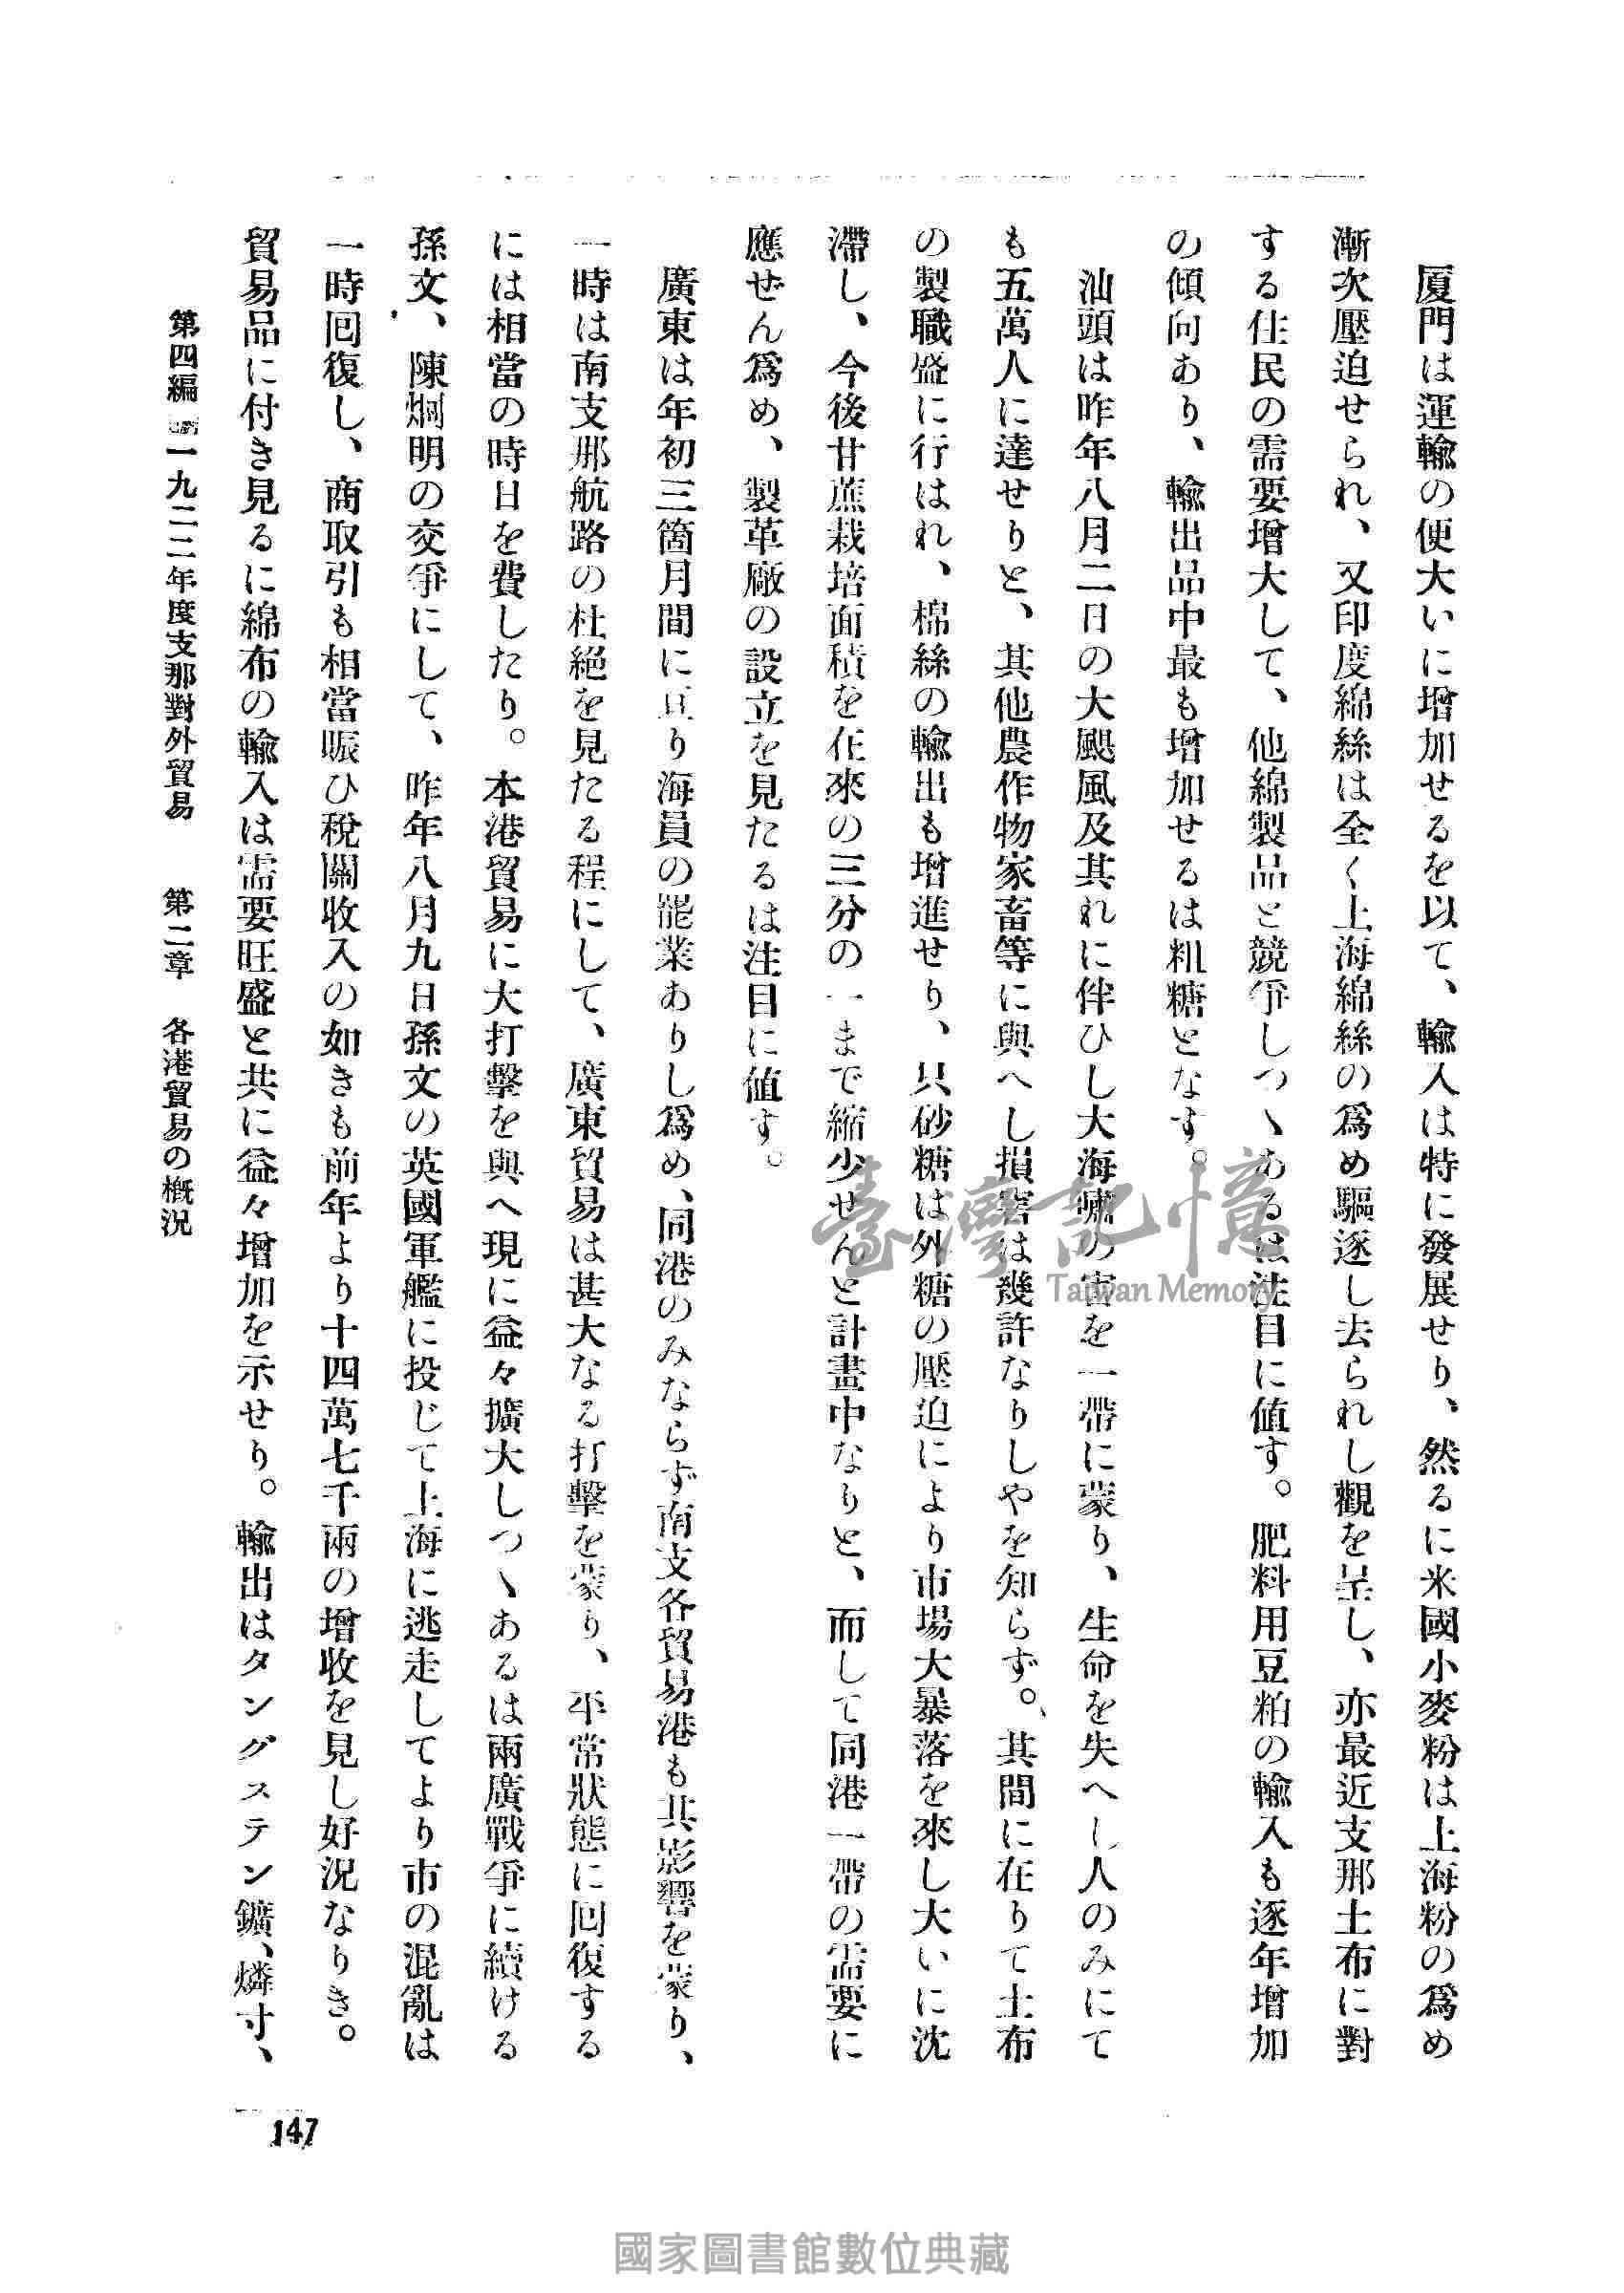 厦門は運輸の便大いに增加せるを以て、輸入は特に發展せり、然るに米國小麥粉は上海粉の爲め
漸次壓迫せられ、又印度綿絲は全く上海綿絲の爲め驅逐し去られし觀を呈し、亦最近支那土布に對
する住民の需要增大して、他綿製品と競爭しつゝあるは注目に値す。肥料用豆粕の輸入も逐年增加
の傾向あり、輸出品中最も增加せるは粗糖となす。
汕頭は昨年八月二日の大颶風及其れに伴ひし大海嘯の害を一帶に蒙り、生命を失へし人のみにて
も五萬人に達せりと、其他農作物家畜等に與へし損害は幾許なりしやを知らず。其間に在りて土布
の製職盛に行はれ、棉絲の輸出も增進せり、只砂糖は外糖の壓迫により市場大暴落を來し大いに沈
滯し、今後甘蔗栽培面積を在來の三分の一まで縮少せんと計畫中なりと、而して同港一帶の需要に
應ぜん爲め、製革廠の設立を見たるは注目に値す。
廣東は年初三箇月間に亘り海員の罷業ありし爲め、同港のみならず南支各貿易港も其影響を蒙り、
一時は南支那航路の杜絕を見たる程にして、廣東貿易は甚大なる打擊を蒙り、平常狀態に回復する
には相當の時日を費したり。本港貿易に大打擊を與へ現に益々擴大しつゝあるは兩廣戰爭に續ける
孫文、陳烱明の交爭にして、昨年八月九日孫文の英國軍艦に投じて上海に逃走してより市の混亂は
一時回復し、商取引も相當賑ひ稅關收入の如きも前年より十四萬七千兩の增收を見し好況なりき。
貿易品に付き見るに綿布の輸入は需要旺盛と共に益々增加を示せり。輸出はタングステン鑛、燐寸、
第四編 一九二二年度支那對外貿易 第二章 各港貿易の槪況
147
臺灣記憶
Taiwan Memory
國家圖書館數位典藏